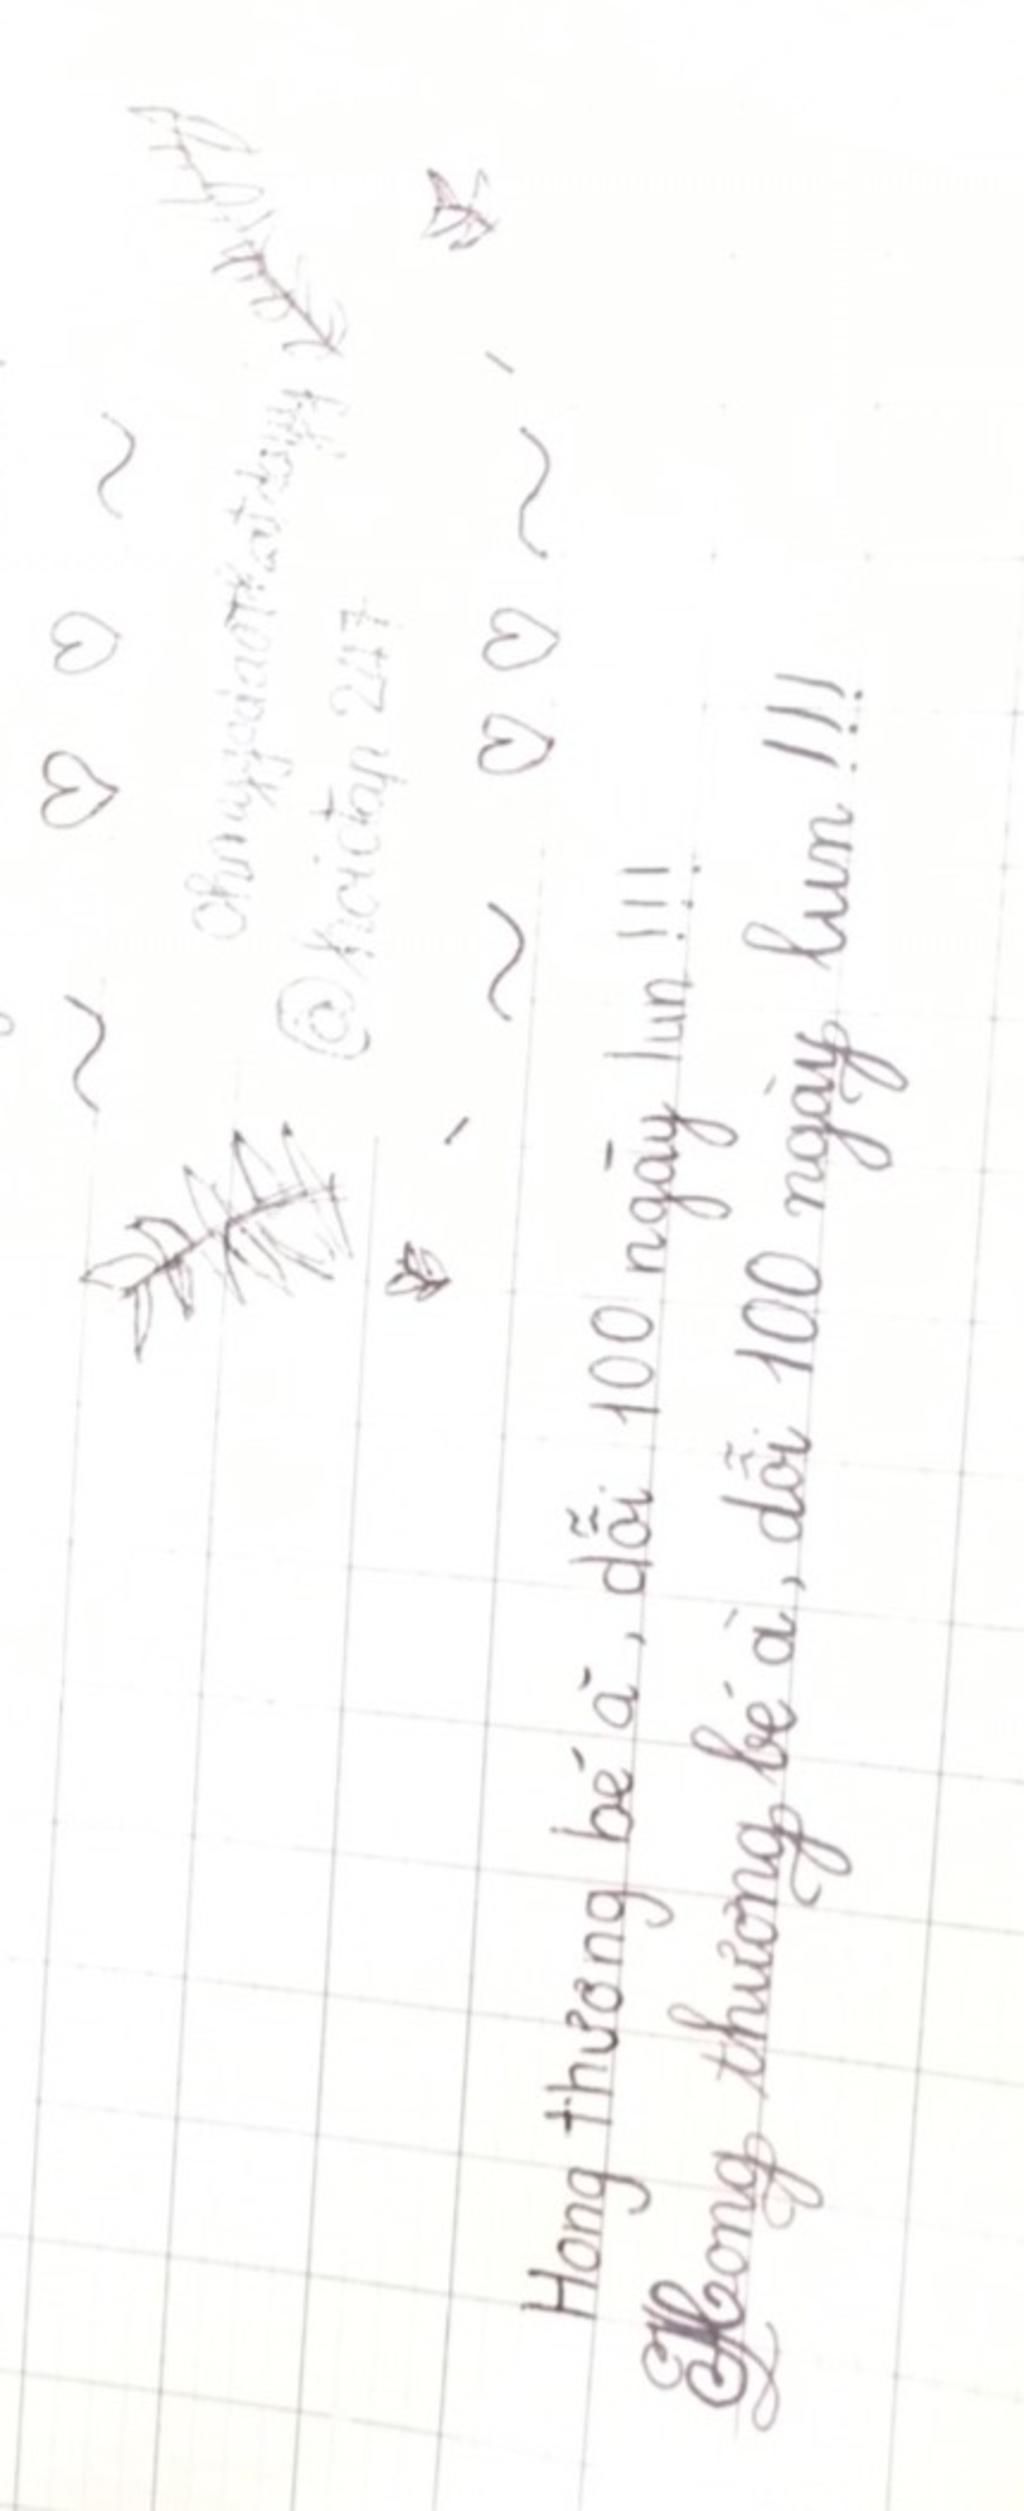 @hoictap 247
Hong thương bé à, dỗi 100 ngày lun !!!
Hong thương bé à, dỗi 100 ngày lun !!!